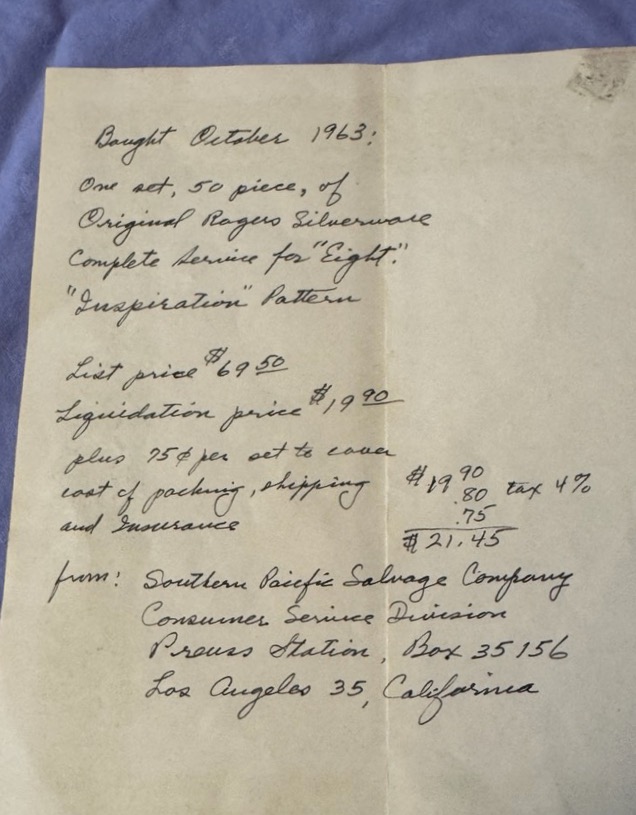 Bought October 1963:
One set, 50 piece, of
Original Rogers Silverware
Complete Service for "Eight".
"Inspiration" Pattern
List price $69 50
Liquidation price $19 90
plus 75¢ per set to cover
cost of packing, shipping
and Insurance
$19 90
.80 tax 4%
.75
$21.45
from: Southern Pacific Salvage Company
Consumer Service Division
Preuss Station, Box 35156
Los Angeles 35, California